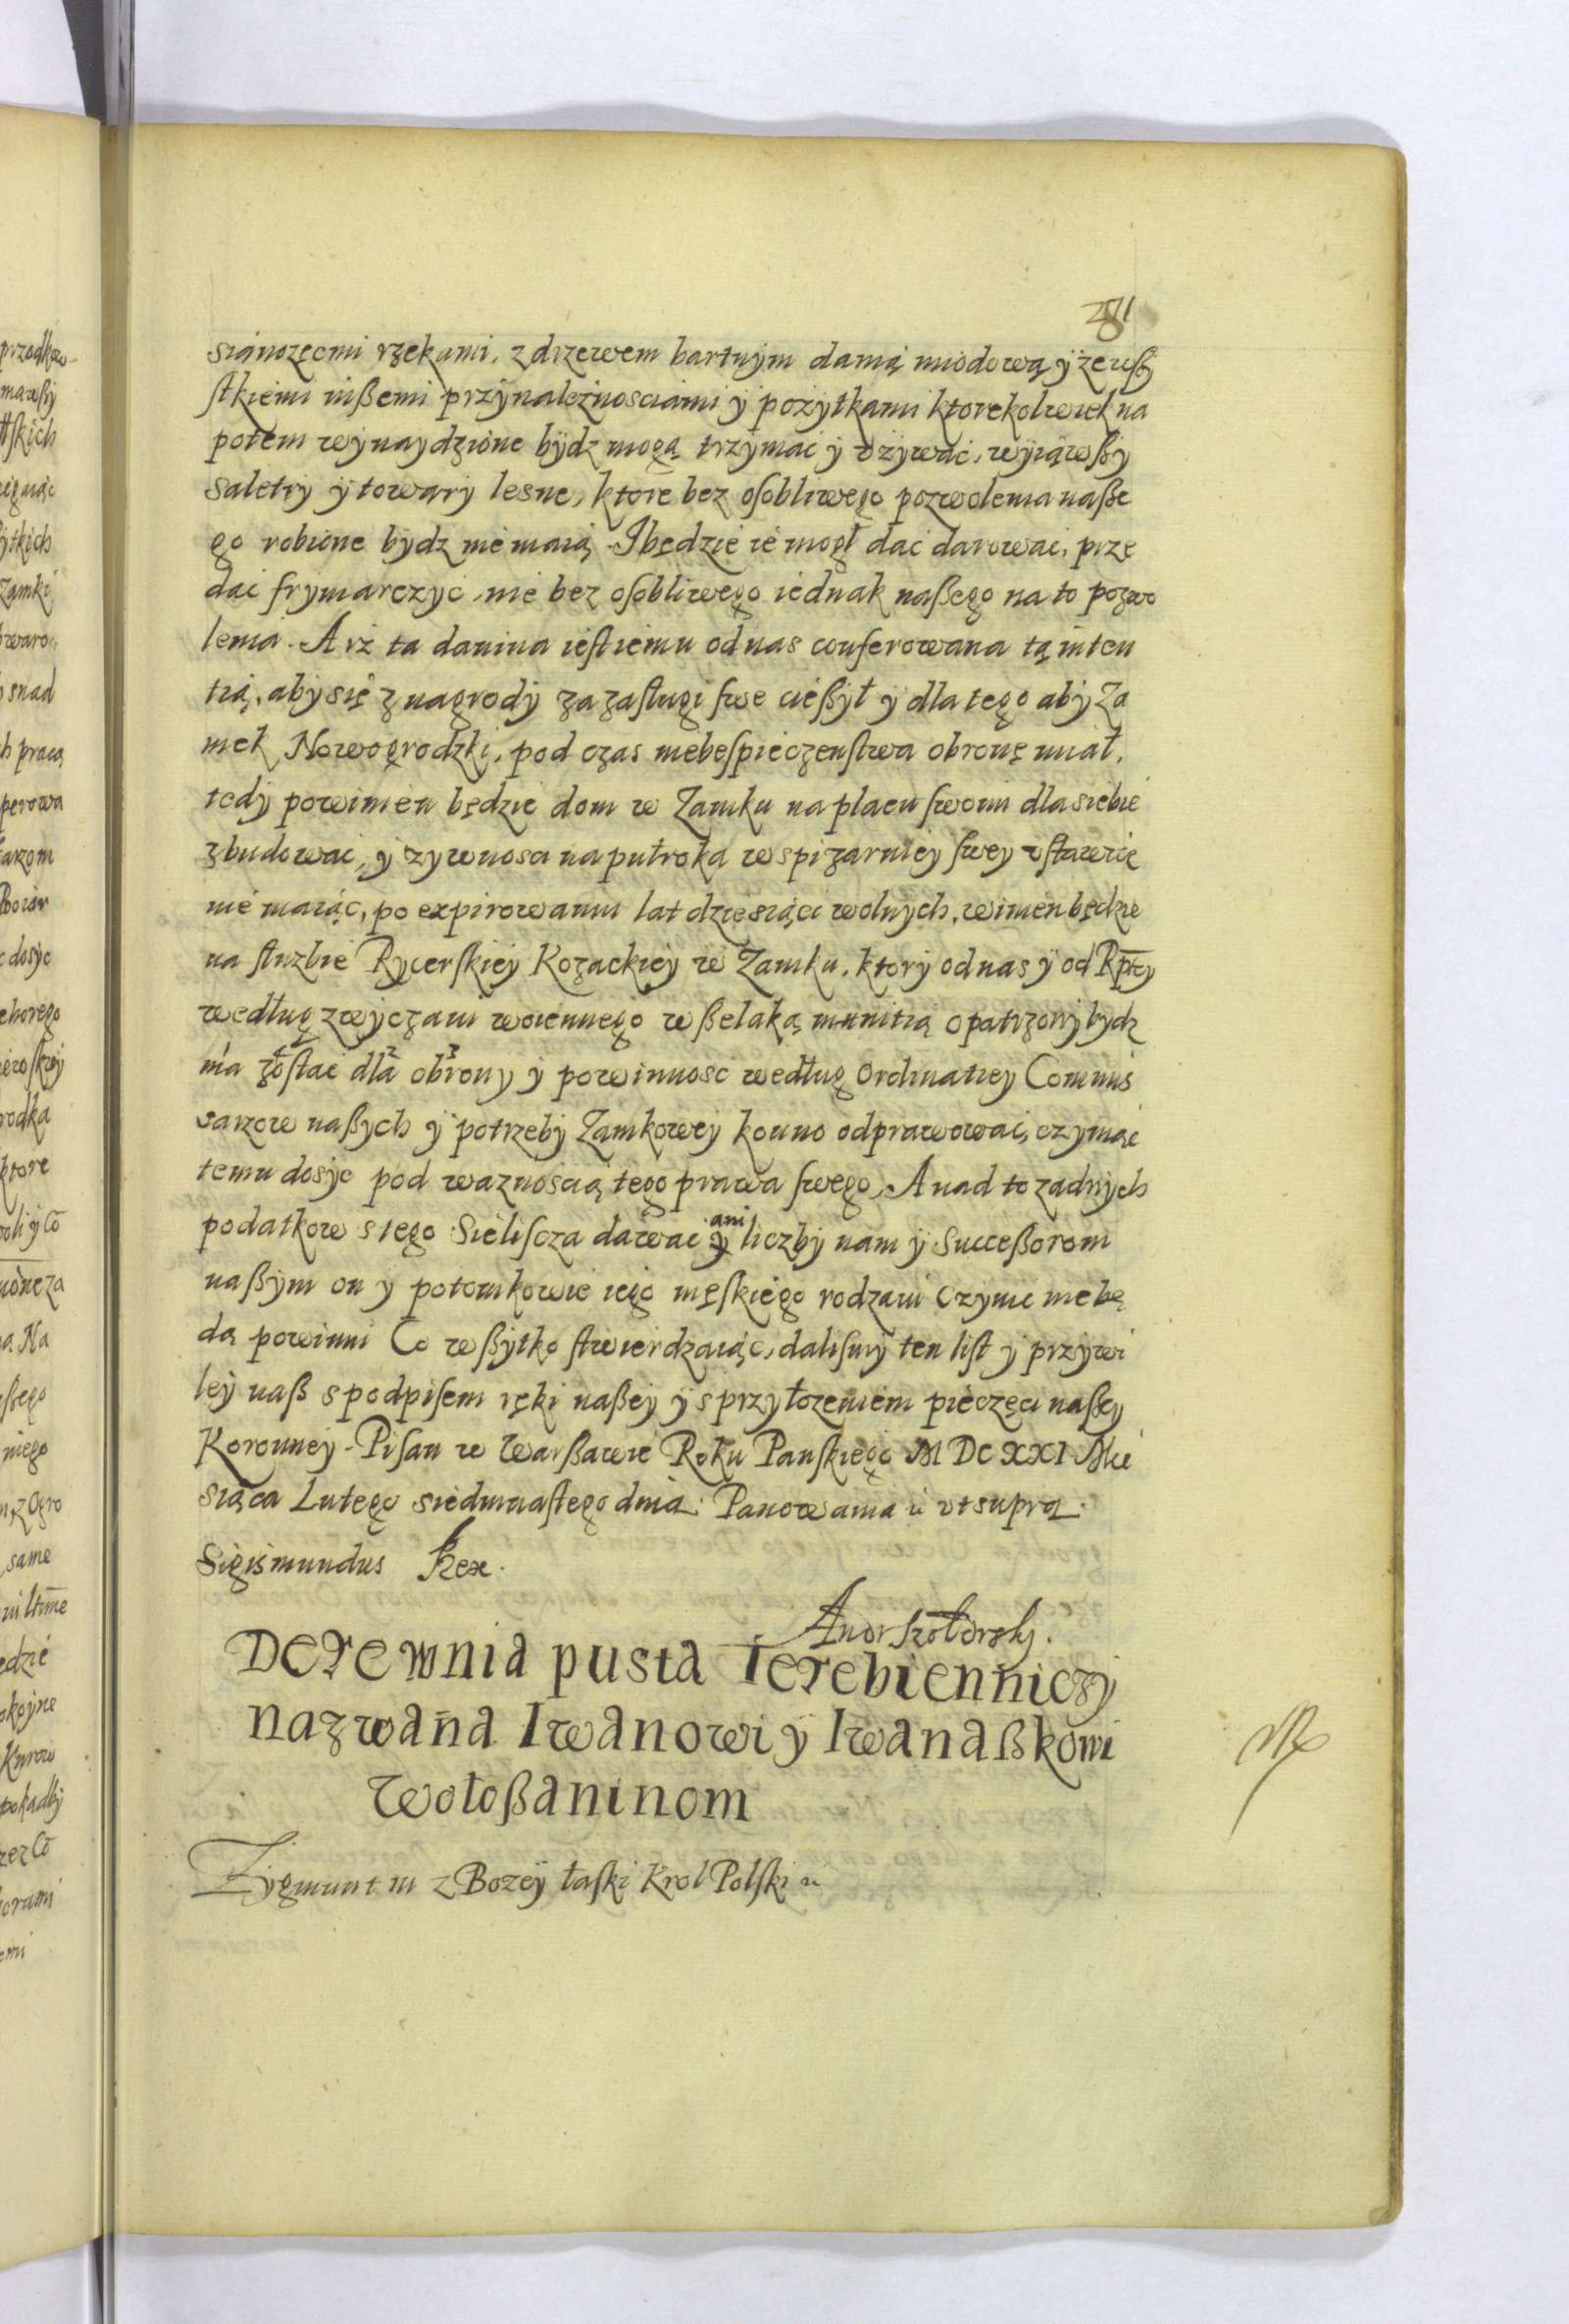 sianożęcmi rzekami, z drzewem bartnÿm danią miodową ÿ ze wßÿ
stkiemi inßemi przÿnależnosciami ÿ pożÿtkami ktorekolwiek na
potem wÿnaÿdzione bÿdz mogą trzÿmać ÿ vżÿwać, wÿiąwßÿ
Saletrÿ ÿ towarÿ lesne, ktore bez osobliwego pozwolenia naße
go robione bÿdz nie maią. I będzie ie mogł dać darować, prze
dać frymarczyć, nie bez osobliwego iednak naßego na to pozwo
lenia. A iż ta danina iest iemu od nas conferowana tą inten
tią, abÿ się z nagrodÿ za zasługi swe cießÿł ÿ dla tego abÿ Za
mek Nowogrodzki, pod czas niebespieczenstwa obronę miał,
tedÿ powinien będzie dom w Zamku na placu swoim dla siebie
zbudować, ÿ zywnosci na pułroka w spizarnieÿ sweÿ vstawicz
nie maiąc, po expirowaniu lat dziesiąci wolnÿch, winien będzie
na służbie Rycerskieÿ Kozackieÿ w Zamku, ktorÿ od nas ÿ od Rptÿ
według zwÿczaiu woiennego wßelaką munitią opatrzonÿ bydz
ma zostać dla obrony ÿ powinnosc według Ordinatieÿ Commis
sarzow naßych ÿ potrzebÿ Zamkoweÿ konno odprawować, czÿniąc
temu dosÿc pod waznoscią tego prawa swego, A nad to zadnÿch
podatkow s tego Sieliscza dawać ani y liczbÿ nam ÿ Succeßorom
naßÿm on y potomkowie iego męskiego rodzaiu Czynic nie bę
dą powinni Co wßÿtko stwierdzaiąc, dalismÿ ten list ÿ przÿwi
leÿ naß s podpisem ręki naßeÿ ÿ s przÿłożeniem pieczęci naßeÿ
Koronneÿ. Pisan w Warßawie Roku Panskiego MDCXXI Mie
siąca Lutego siedmnastego dnia. Panowania vt supra.
Sigismundus Rex.
Derewnia pusta Terebienniczÿ
nazwana Iwanowi ÿ Iwanaßkowi
Wołoßaninom
Zygmunt III z Bożeÿ łaski Krol Polski